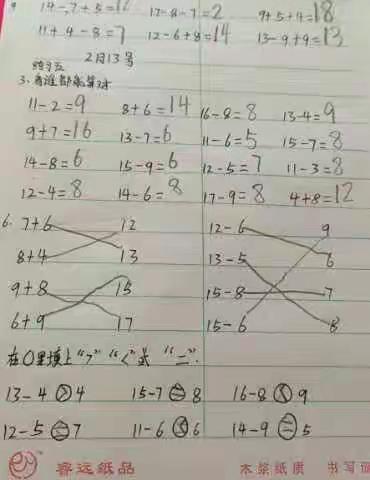 14-7+5=12 17-8-7=2 9+5+4=18
11+4-8=7 12-6+8=14 13-9+9=13
2月13号
3.看谁都能算对
11-2=9 8+6=14 16-8=8 13-4=9
9+7=16 13-7=6 11-6=5 15-7=8
14-8=6 15-9=6 12-5=7 11-3=8
12-4=8 14-6=8 17-9=8 4+8=12
6. 7+6 12 12-6 9
8+4 13 13-5 6
9+8 15 15-8 7
6+9 17 15-6 8
在○里填上">""<"或"=".
13-4>4 15-7=8 16-8<9
12-5=7 11-6<6 14-9=5
睿远纸品 木浆纸质 书写